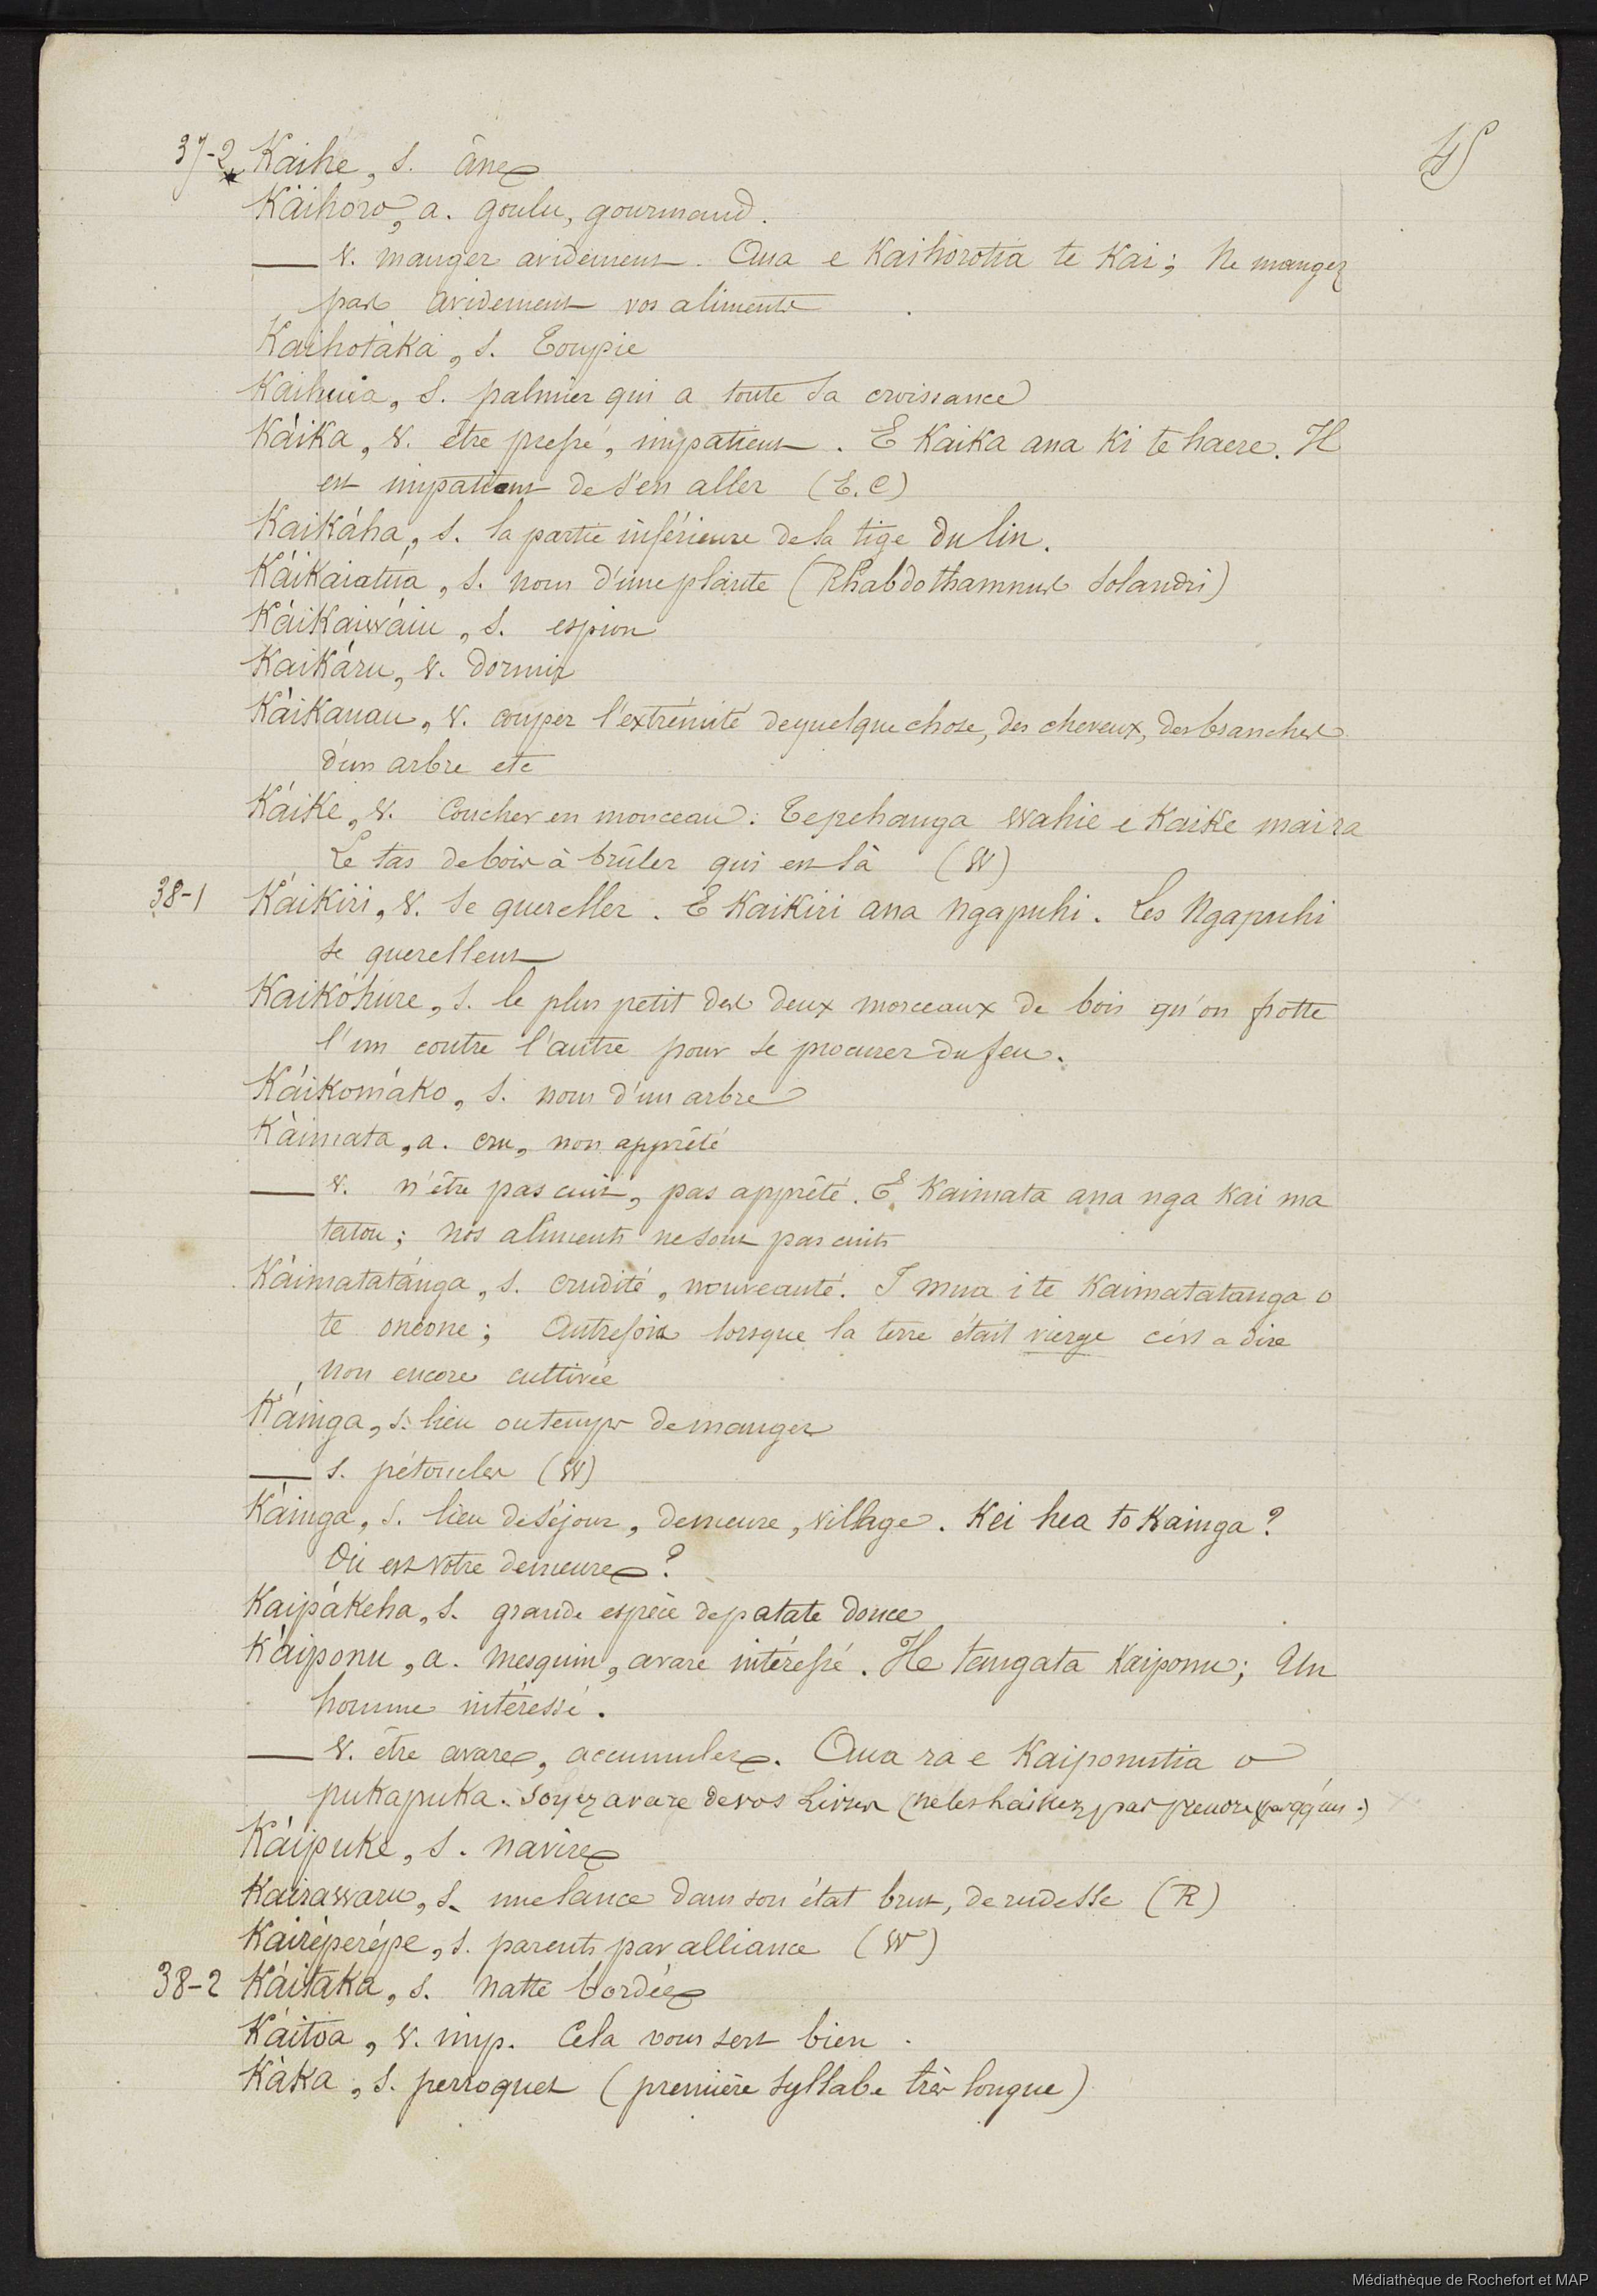 45
37-2 * Kaihe, s. âne
Kàihoro, a. goulu, gourmand.
— v. manger avidement. Aua e Kaihorotia te Kai; Ne mangez
pas avidement vos aliments
Kaihotàka, s. Toupie
Kaihuia, s. palmier qui a toute sa croissance
Kàika, v. être pressé, impatient. E Kaika ana Ki te haere. Il
est impatient de s'en aller (E.C)
Kaikáha, s. la partie inférieure de la tige du lin.
Káikaiatúa, s. nom d'une plante (Rhabdothamnus Solandri)
Káikaiwáiu, s. espion
Kaikáru, v. dormir
Kàikauau, v. couper l'extrémité de quelque chose, des cheveux, des branches
d'un arbre etc
Káike, v. Coucher en monceau. Te pehanga wahie e Kaike mai ra
Le tas de bois à brûler qui est là (W)
38-1 Káikiri, v. se quereller. E Kaikiri ana Ngapuhi. Les Ngapuhi
se querellent
Kaikóhure, s. le plus petit des deux morceaux de bois qu'on frotte
l'un contre l'autre pour se procurer du feu.
Káikomáko, s. nom d'un arbre
Kàimata, a. cru, non apprêté
— v. n'être pas cuit, pas apprêté. E Kaimata ana nga Kai ma
tatou; nos aliments ne sont pas cuits
Kàimatatánga, s. crudité, nouveauté. I mua i te Kaimatatanga o
te oneone; Autrefois lorsque la terre était vierge c'est a dire
non encore cultivée
Káinga, s. lieu ou temps de manger
— s. pétoncles (W)
Kàinga, s. lieu de séjour, demeure, village. Kei hea to Kainga?
Où est votre demeure?
Kaipákeha, s. grande espèce de patate douce
Kàiponu, a. mesquin, avare intéressé. He tangata Kaiponu; Un
homme intéressé.
— v. être avare, accumuler. Aua ra e Kaiponutia o
pukapuka. Soyez avare de vos Livres (ne les laissez pas prendre par qq'un.)
Káipuke, s. navire
Kairawaru, s. une lance dans son état brut, de rudesse (R)
Kairéperépe, s. parents par alliance (W)
38-2 Káitaka, s. natte bordée
Káitoa, v. imp. Cela vous sert bien.
Kàka, s. perroquet (première syllabe très longue)
Médiathèque de Rochefort et MAP